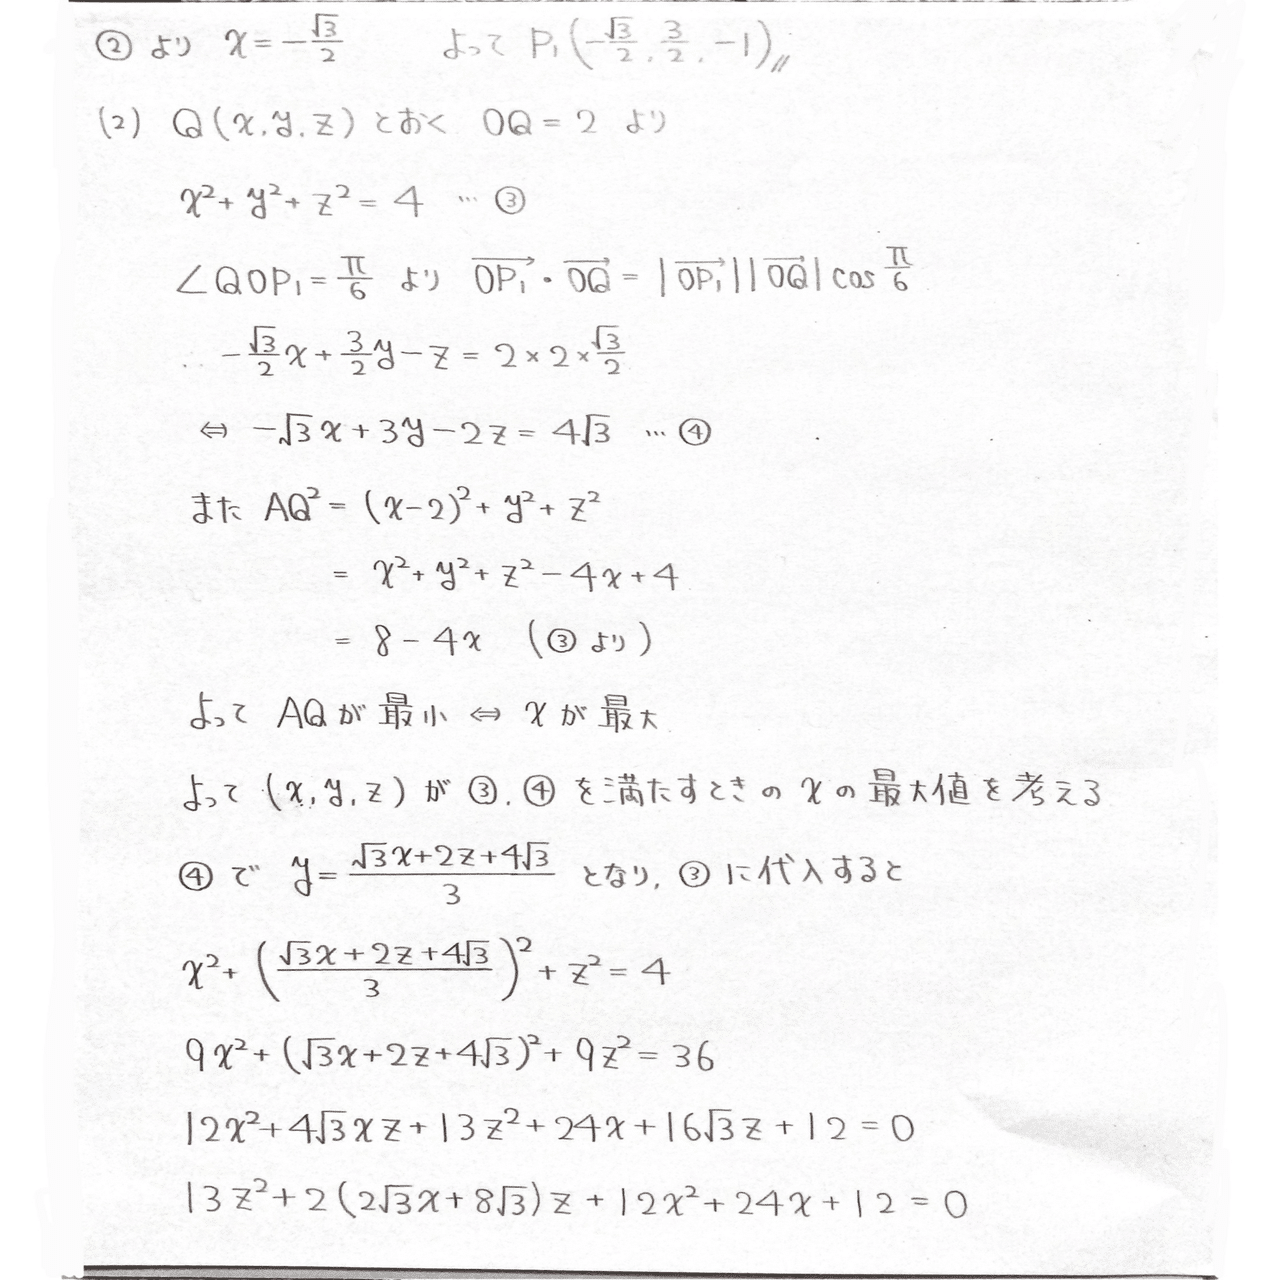 ② より x = -√3/2 よって P₁(-√3/2, 3/2, -1)〃
(2) Q(x, y, z) とおく OQ = 2 より
x² + y² + z² = 4 … ③
∠QOP₁ = π/6 より OP₁→・OQ→ = |OP₁→||OQ→| cos π/6
∴ -√3/2 x + 3/2 y - z = 2 × 2 × √3/2
⇔ -√3x + 3y - 2z = 4√3 … ④
また AQ² = (x-2)² + y² + z²
= x² + y² + z² - 4x + 4
= 8 - 4x (③より)
よって AQ が 最小 ⇔ x が 最大
よって (x, y, z) が ③, ④ を満たすときの x の 最大値 を 考える
④ で y = (√3x+2z+4√3)/3 となり, ③ に代入すると
x² + ((√3x+2z+4√3)/3)² + z² = 4
9x² + (√3x+2z+4√3)² + 9z² = 36
12x² + 4√3xz + 13z² + 24x + 16√3z + 12 = 0
13z² + 2(2√3x + 8√3)z + 12x² + 24x + 12 = 0